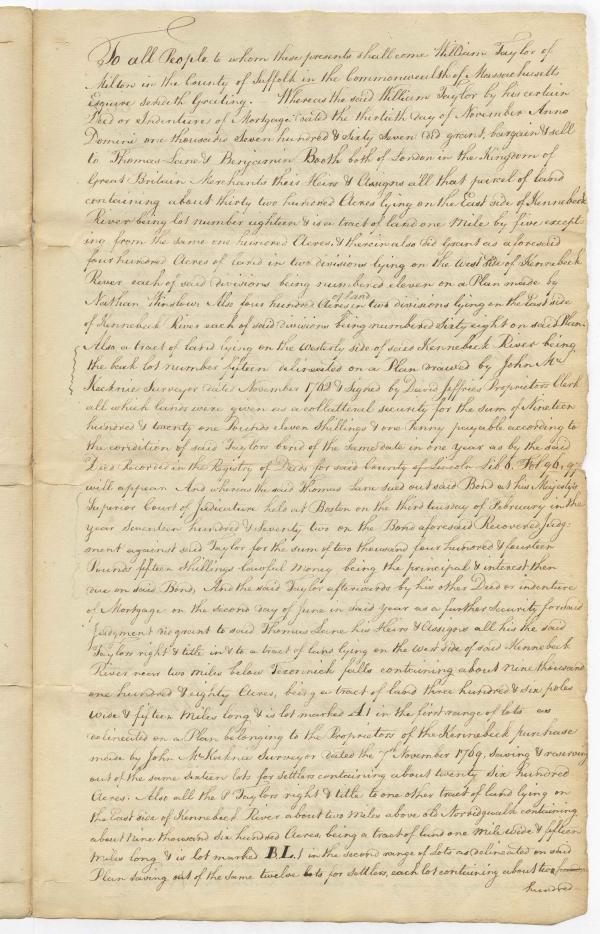 To all People to whom these presents shall come William Taylor of
Milton in the County of Suffolk in the Commonwealth of Massachusetts
Esquire sendeth Greeting. Whereas the said William Taylor by his certain
Deed or Indenture of Mortgage dated the thirtith day of November Anno
Domini one thousand Seven hundred & Sixty Seven did grant, bargain & sell
to Thomas Lane & Benjamin Booth both of London in the Kingdom of
Great Britain Merchants their Heirs & Assigns all that parcel of land
containing about thirty two hundred Acres lying on the East side of Kennebeck
River being lot number eighteen & is a tract of land one mile by five except-
ing from the same one hundred Acres, & therein also did grant as aforesaid
four hundred Acres of land in two divisions lying on the West side of Kennebeck
River each of said divisions being numbered eleven on a Plan made by
Nathan Winslow Also four hundred Acres of land in two divisions lying on the East side
of Kennebeck River each of said divisions being numbered Sixty eight on said Plan.
Also a tract of land lying on the westerly side of said Kennebeck River being
the back lot number fifteen delineated on a Plan drawed by John Mc
Kecknie Surveyor dated November 1762 & Signed by David Jeffries Proprietors Clerk
all which lands were given as a collatteral security for the sum of Nineteen
hundred & twenty one Pounds Seven Shillings & one Penny payable according to
the condition of said Taylors bond of the same date in one year as by the said
Deed Recorded in the Registry of Deeds for said County of Lincoln Lib 6. Fol 96, 97
will appear And whereas the said Thomas Lane sued out said Bond at his Majesty's
Superior Court of Judicature held at Boston on the third tuesday of February in the
year Seventeen hundred & Seventy two on the Bond aforesaid Recovered Judg-
ment against said Taylor for the sum of two thousand four hundred & fourteen
Pounds fifteen Shillings lawfull Money being the principal & interest then
due on said Bond, And the said Taylor afterwards by his other Deed or indenture
of Mortgage on the second day of June in said year as a further security for said
Judgment did grant to said Thomas Lane his Heirs & Assigns all his the said
Taylors right & title in & to a tract of land lying on the West side of said Kennebeck
River near two miles below Teconnick falls containing about nine thousand
one hundred & eighty Acres, being a tract of land three hundred & six poles
wide & fifteen Miles long & is lot marked A1 in the first range of lots as
delineated on a Plan belonging to the Proprietors of the Kennebeck purchase
made by John McKecknie Surveyor dated the 7th November 1769, saving & reserving
out of the same sixteen lots for settlers containing about twenty six hundred
Acres. Also all the sd Taylors right & title to one other tract of land lying on
the East side of Kennebeck River about two Miles above old Norridgwalk containing
about nine thousand six hundred Acres, being a tract of land one mile wide & fifteen
Miles long & is lot marked B. L. 1 in the second range of Lots as delineated on said
Plan saving out of the same twelve lots for settlers, each lot containing about two
hundred